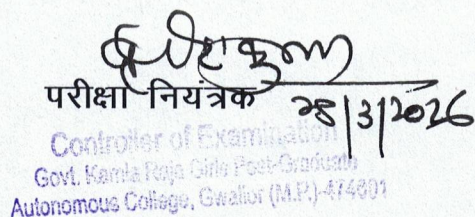 परीक्षा नियंत्रक 28/3/2026
Controller of Examination
Govt. Kamla Raja Girls Post-Graduate
Autonomous College, Gwalior (M.P.)-474001